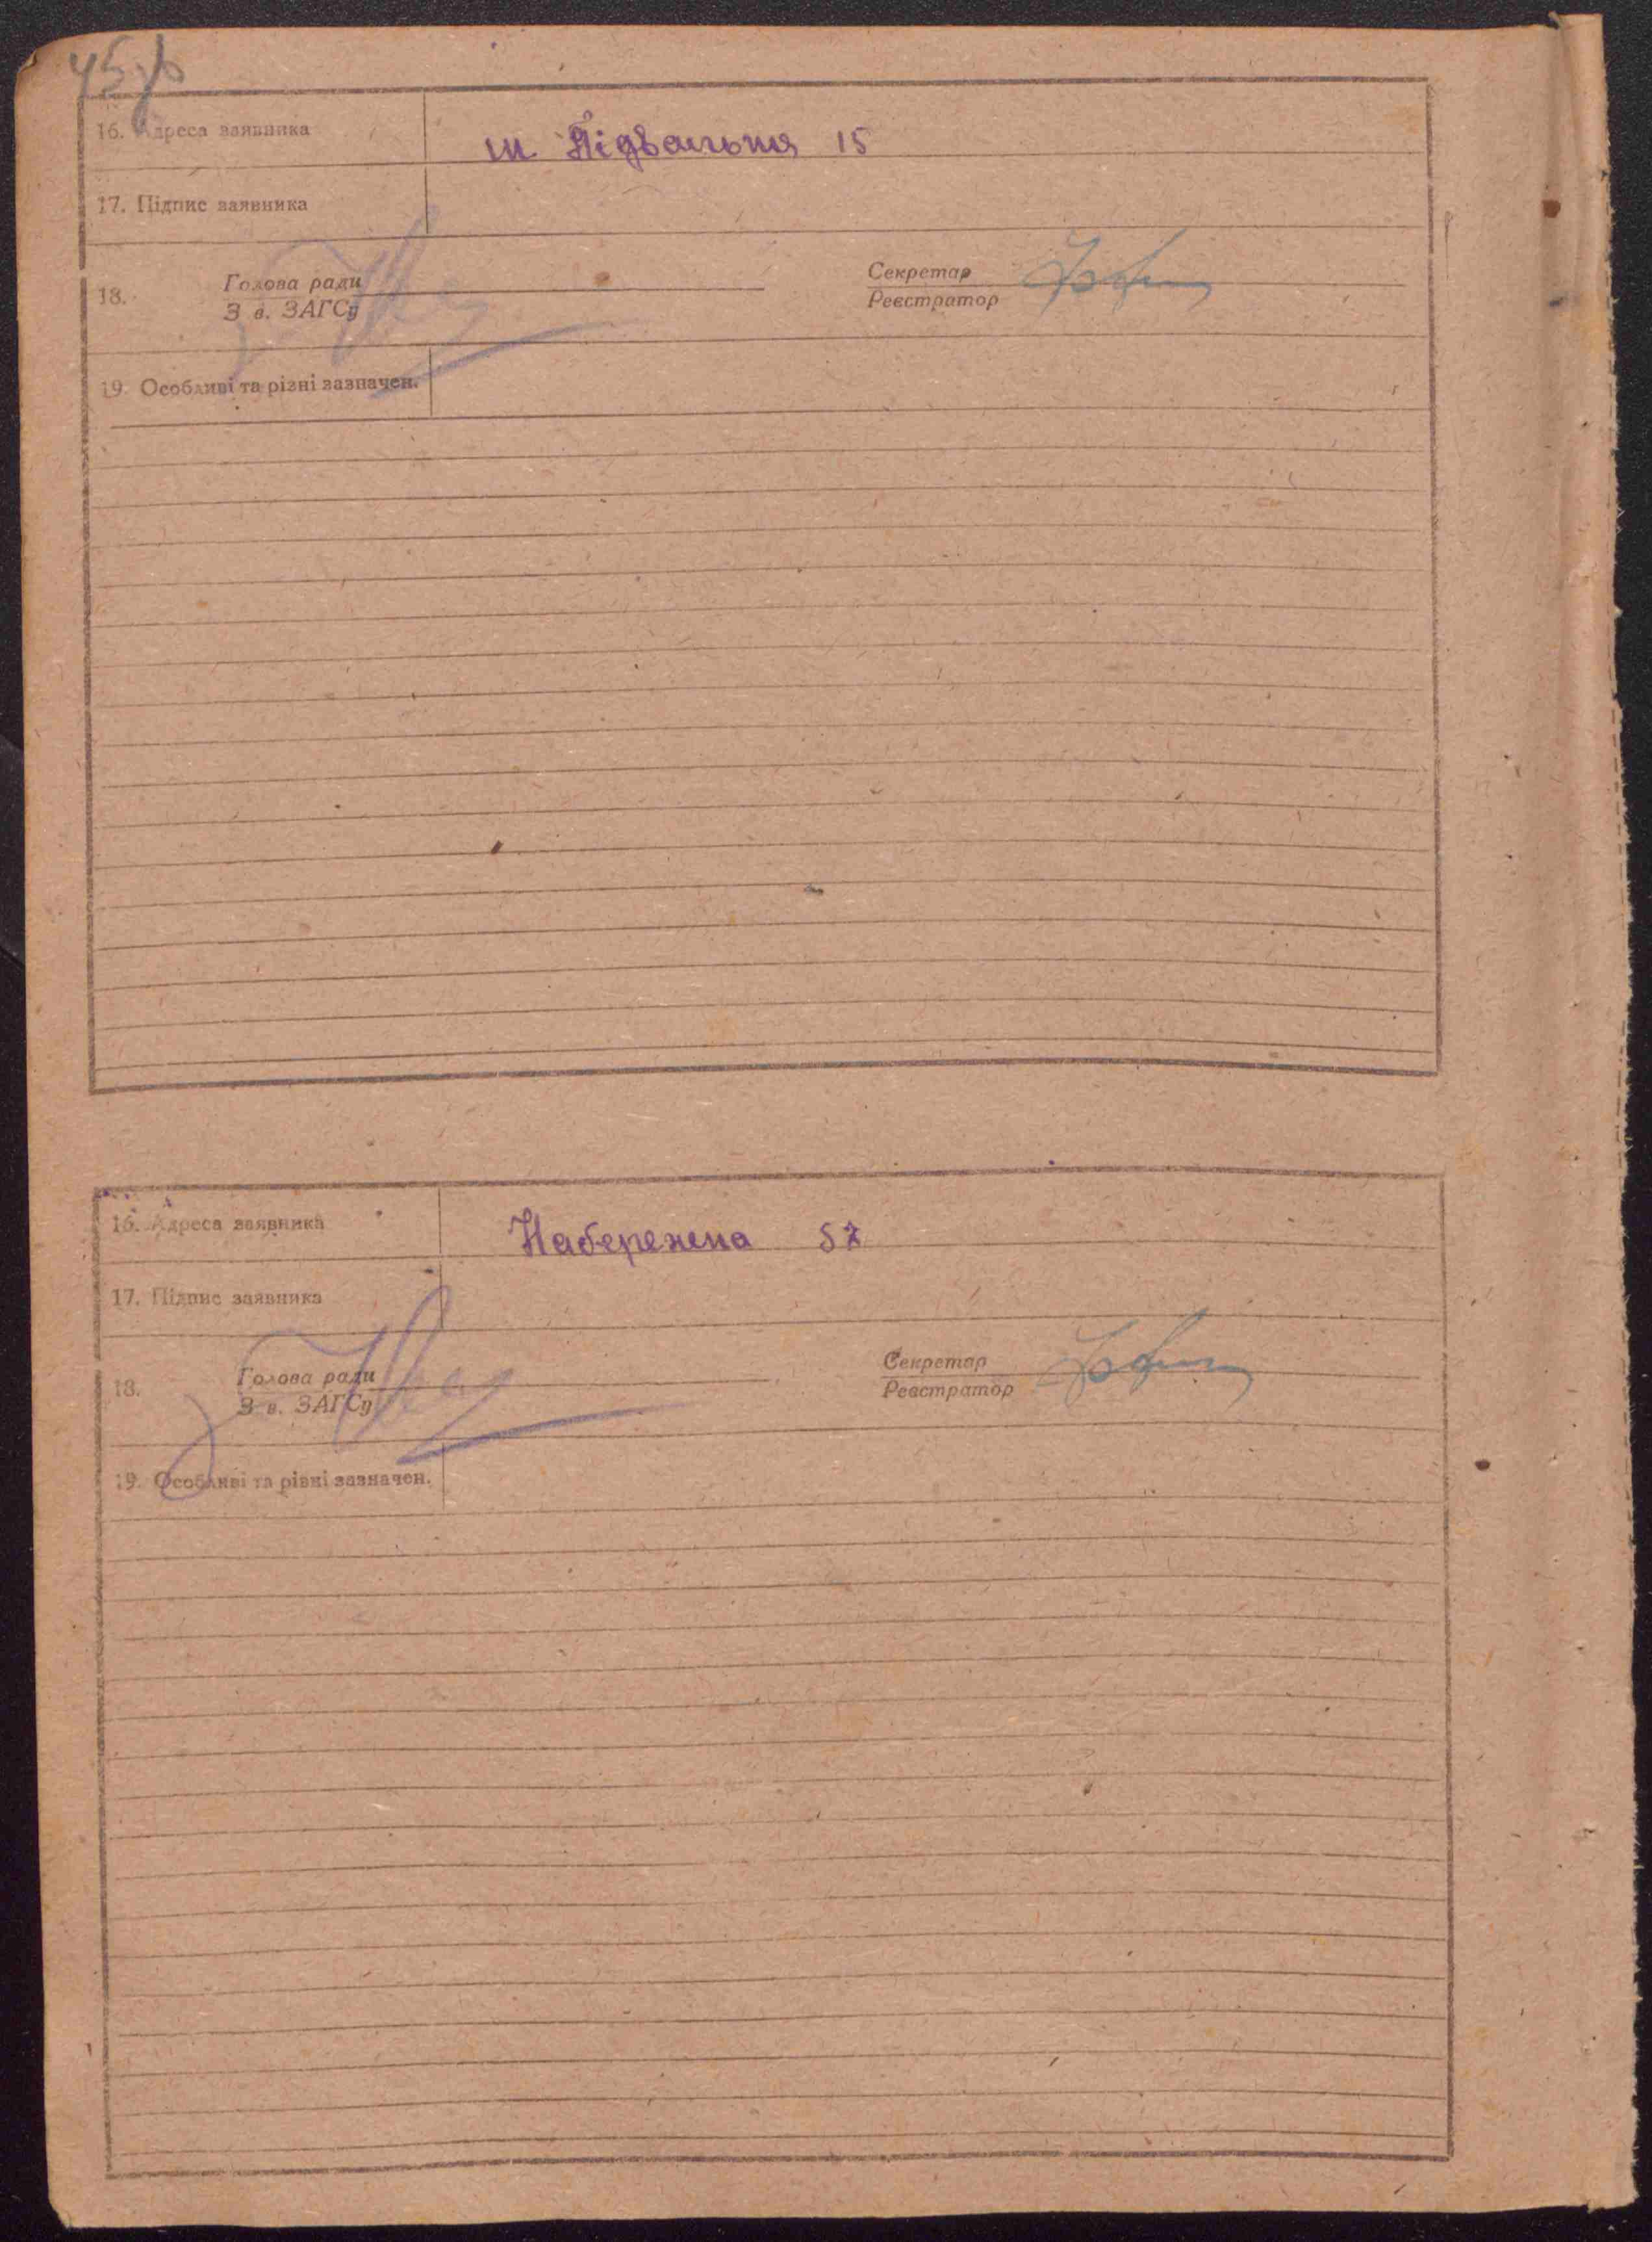 45 зв
16. Адреса заявника ш Підвальня 15
17. Підпис заявника
18. Голова ради Секретар
З в. ЗАГСу Реєстратор
19. Особливі та різні зазначен.
16. Адреса заявника Набережена 57
17. Підпис заявника
18. Голова ради Секретар
З в. ЗАГСу Реєстратор
19. Особливі та різні зазначен.